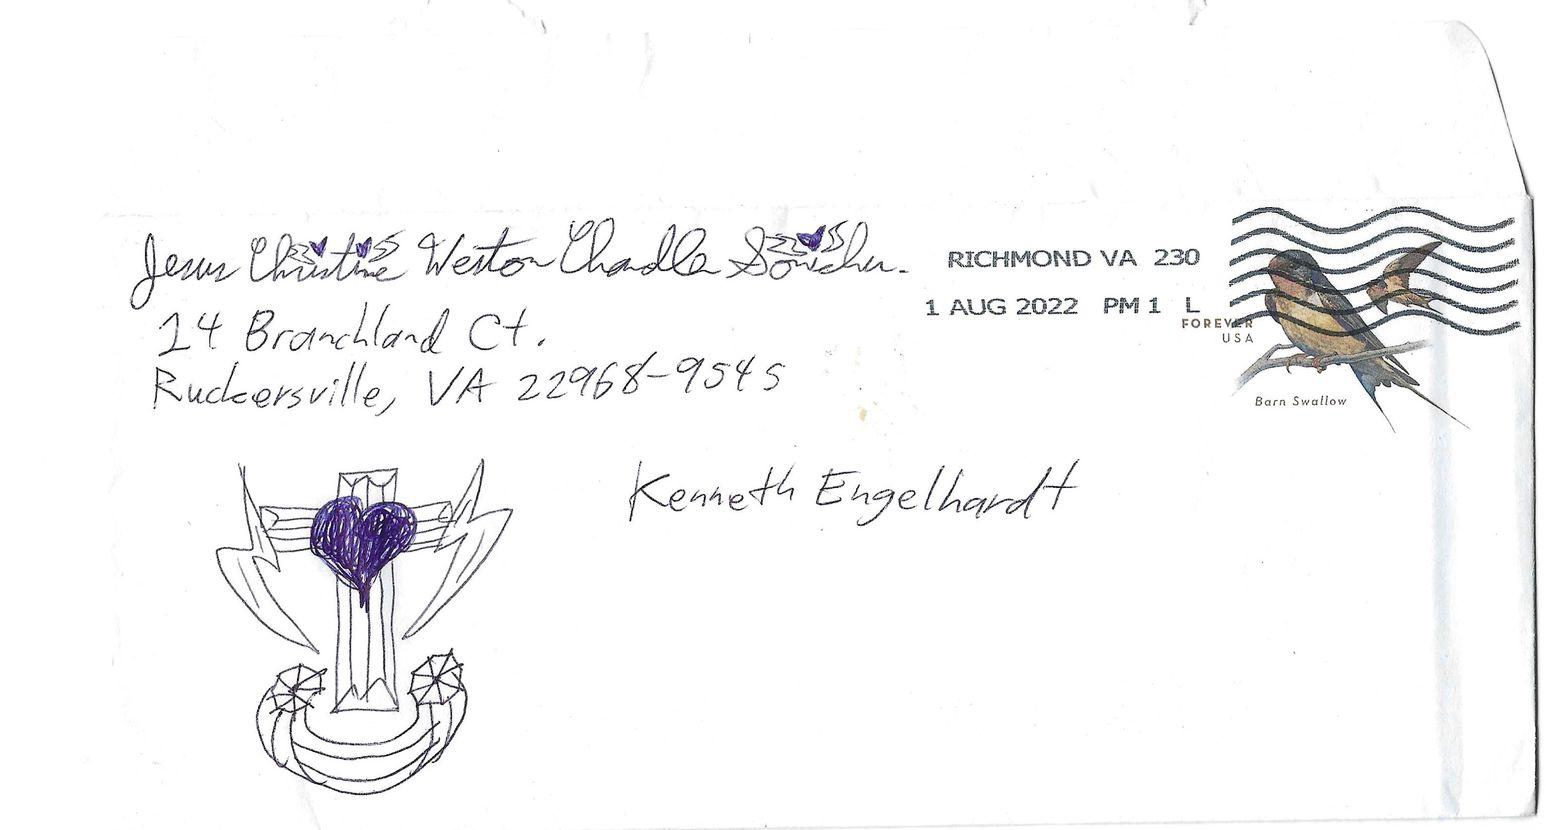 Jesus Christine Weston Chandler Sonichu.
14 Branchland Ct.
Ruckersville, VA 22968-9545
RICHMOND VA 230
1 AUG 2022 PM 1 L
FOREVER
USA
Barn Swallow
Kenneth Engelhardt